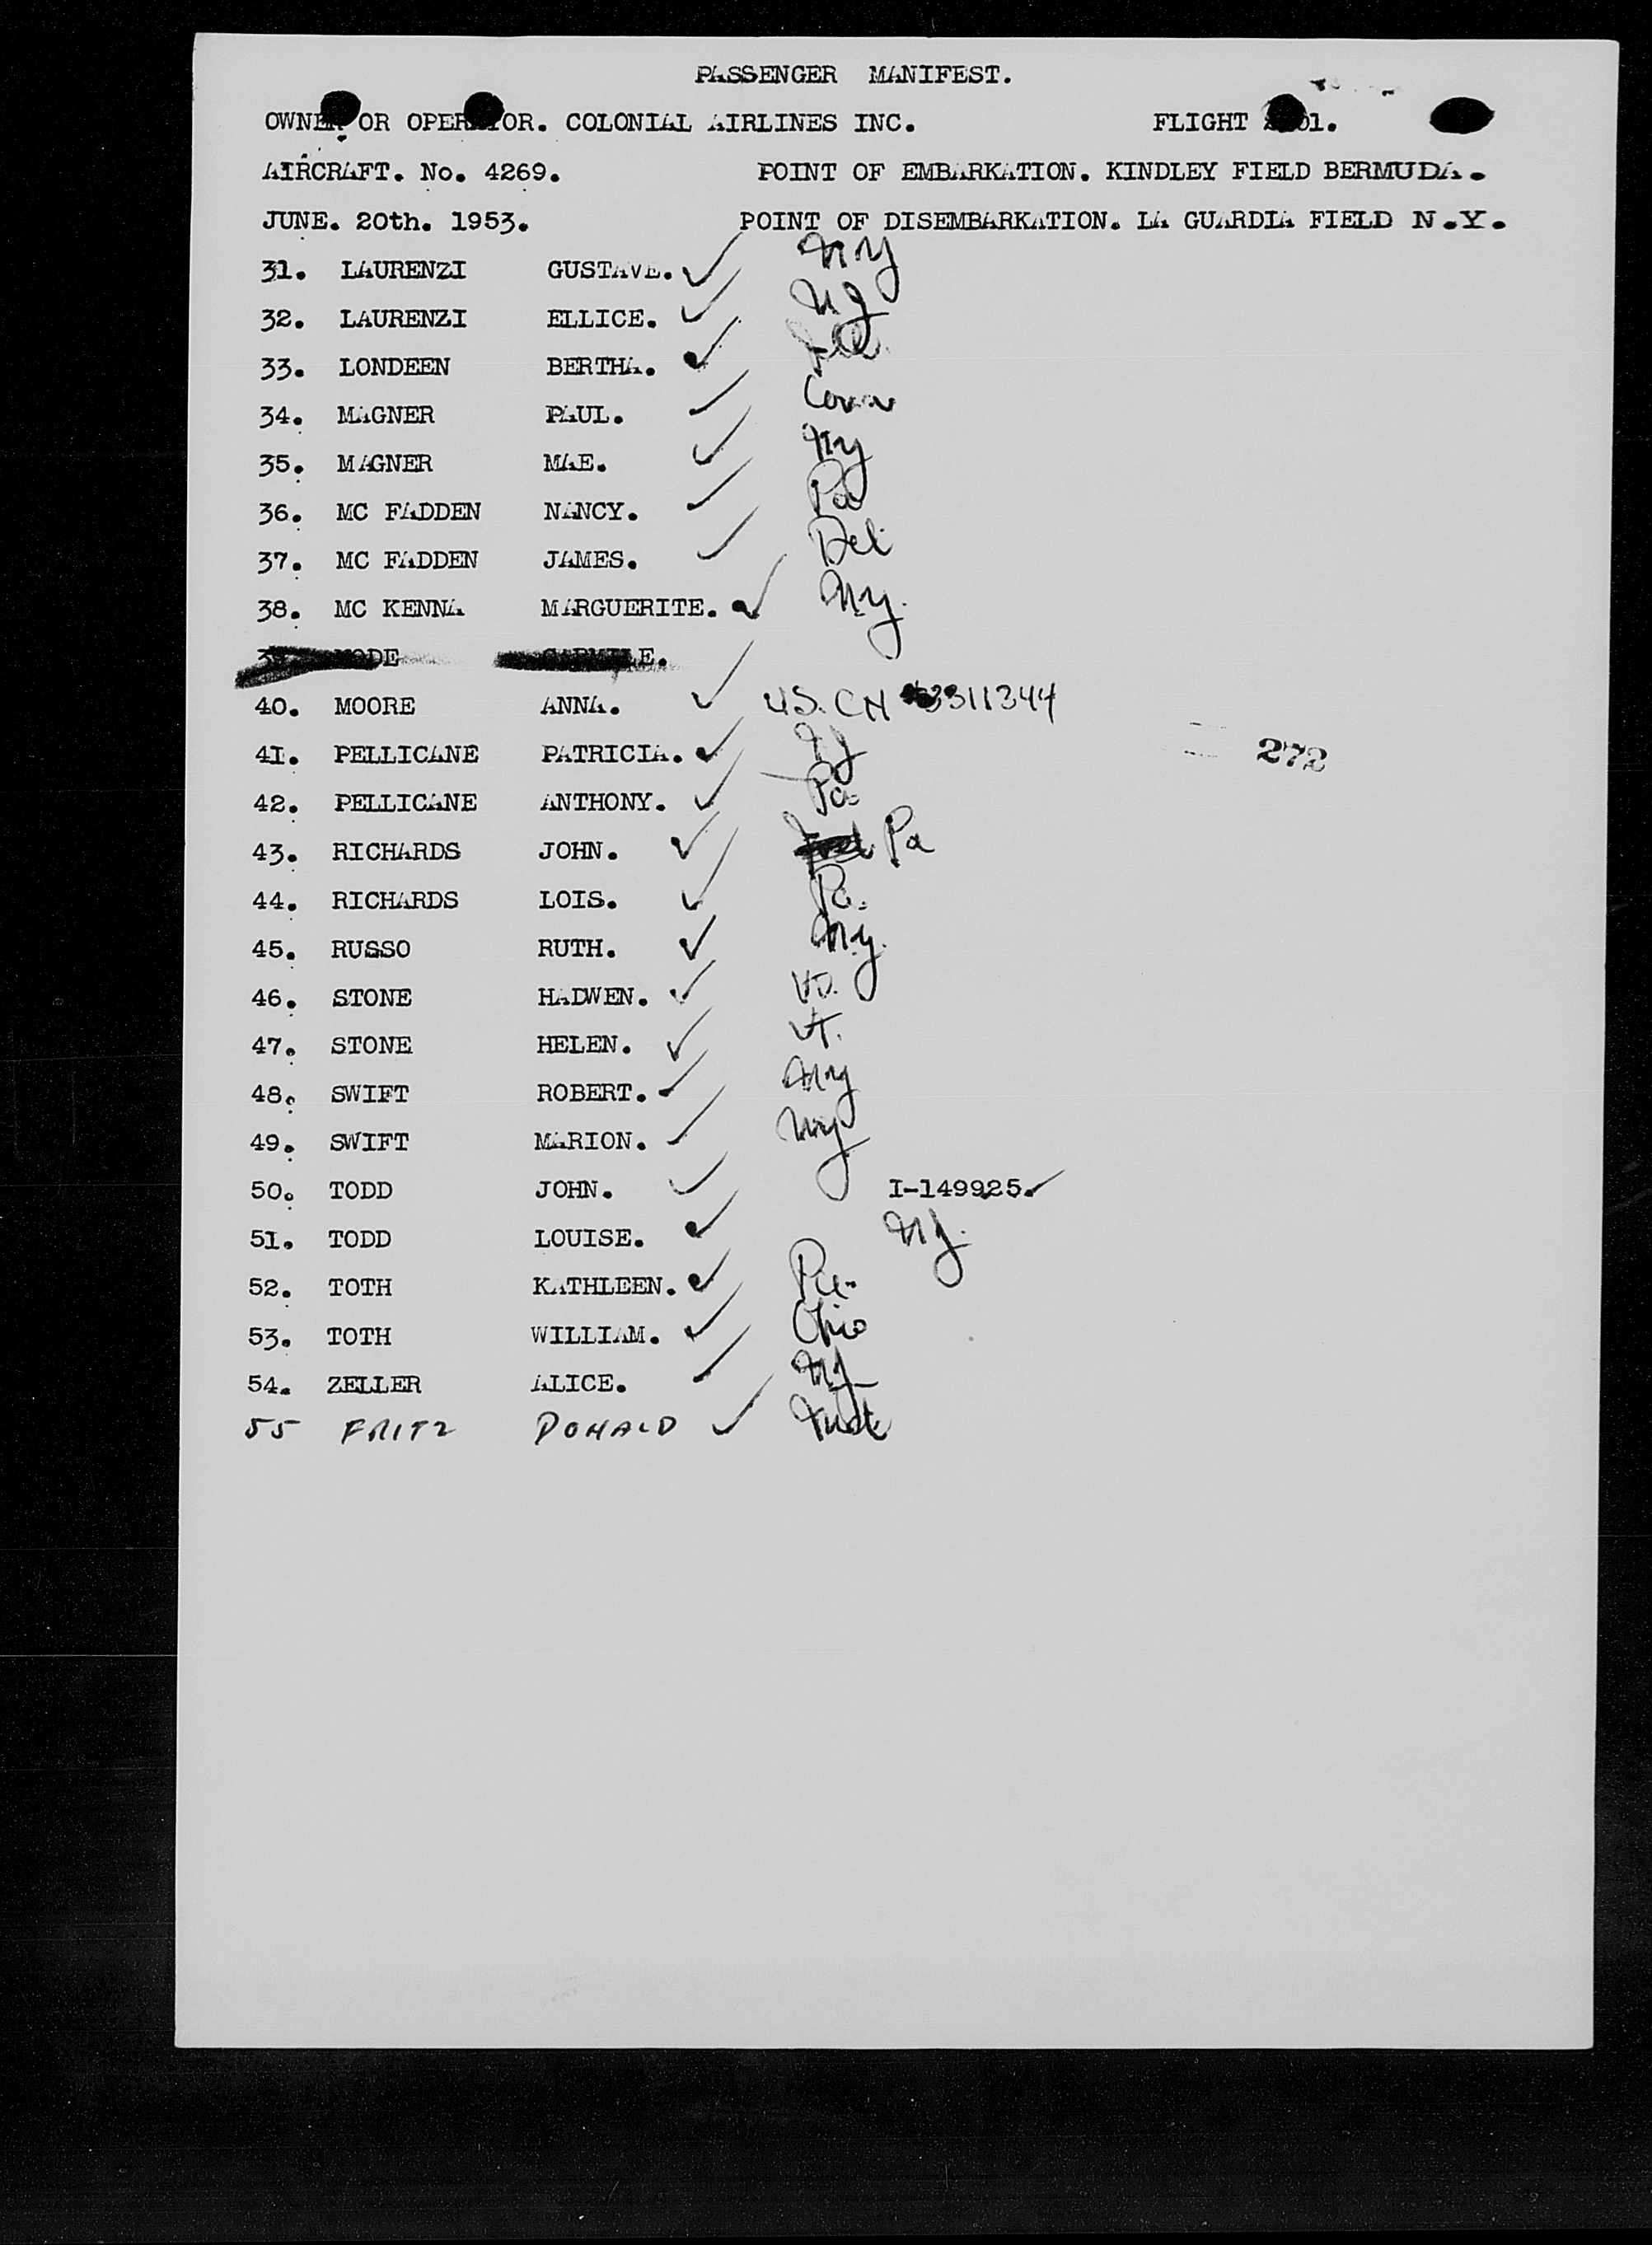 PASSENGER MANIFEST.
OWNER OR OPERATOR. COLONIAL AIRLINES INC. FLIGHT
AIRCRAFT. No. 4269. POINT OF EMBARKATION. KINDLEY FIELD BERMUDA.
JUNE. 20th. 1953. POINT OF DISEMBARKATION. LA GUARDIA FIELD N.Y.
31. LAURENZI GUSTAVE. ✓ NY
32. LAURENZI ELLICE. ✓ NJ
33. LONDEEN BERTHA. ✓
34. MAGNER PAUL. ✓ Conn
35. MAGNER MAE. ✓ NY
36. MC FADDEN NANCY. ✓ Pa
37. MC FADDEN JAMES. ✓ Del
38. MC KENNA MARGUERITE. ✓ N.y.
40. MOORE ANNA. ✓ US. CN 3311344
41. PELLICANE PATRICIA. ✓ NJ
272
42. PELLICANE ANTHONY. ✓ Pa.
43. RICHARDS JOHN. ✓ Pa
44. RICHARDS LOIS. ✓ Pa.
45. RUSSO RUTH. ✓ N.y.
46. STONE HADWEN. ✓
47. STONE HELEN. ✓ Vt.
48. SWIFT ROBERT. ✓ NY
49. SWIFT MARION. ✓ NY
50. TODD JOHN. ✓ I-149925. ✓
51. TODD LOUISE. ✓ NJ.
52. TOTH KATHLEEN. ✓ Pa.
53. TOTH WILLIAM. ✓ Ohio
54. ZELLER ALICE. ✓ NJ
55 FRITZ DONALD ✓